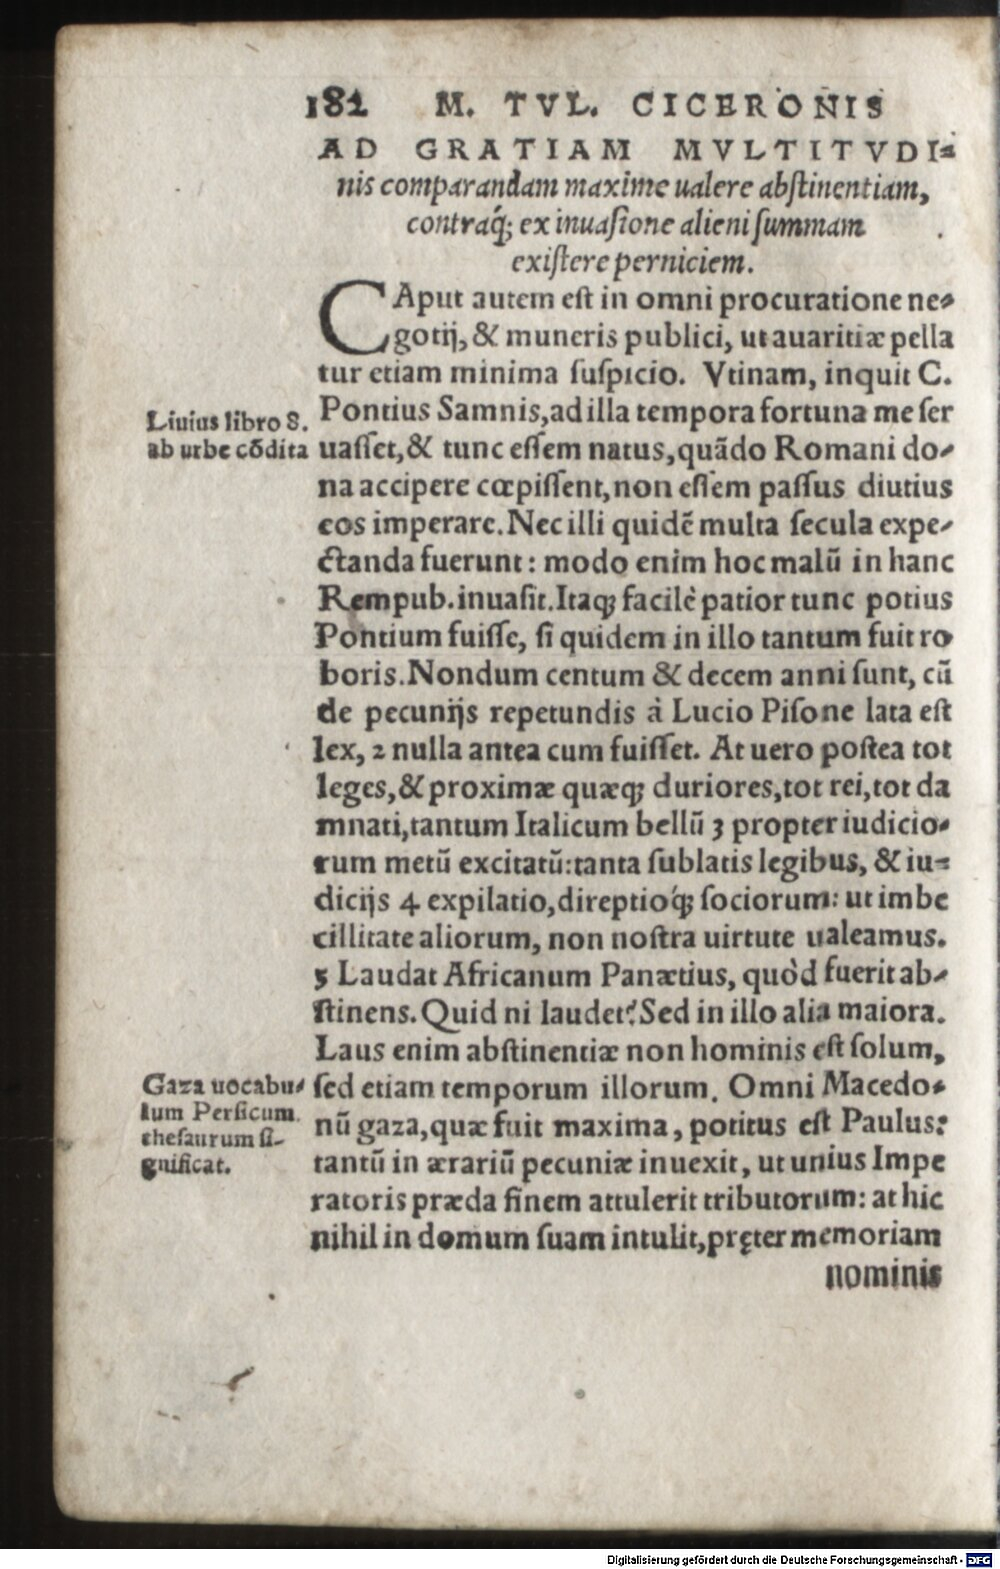 182 M. TVL. CICERONIS
AD GRATIAM MVLTITVDI-
nis comparandam maxime ualere abſtinentiam,
contraq́; ex inuaſione alieni ſummam
exiſtere perniciem.
CAput autem eſt in omni procuratione ne-
gotij, & muneris publici, ut auaritiæ pella
tur etiam minima ſuſpicio. Vtinam, inquit C.
Liuius libro 8.
ab urbe cōdita
Pontius Samnis, ad illa tempora fortuna me ſer
uaſſet, & tunc eſſem natus, quādo Romani do-
na accipere cœpiſſent, non eſſem paſſus diutius
eos imperare. Nec illi quidē multa ſecula expe-
ctanda fuerunt: modo enim hoc malū in hanc
Rempub. inuaſit. Itaq; facilè patior tunc potius
Pontium fuiſſe, ſi quidem in illo tantum fuit ro
boris. Nondum centum & decem anni ſunt, cū
de pecunijs repetundis à Lucio Piſone lata eſt
lex, 2 nulla antea cum fuiſſet. At uero poſtea tot
leges, & proximæ quæq; duriores, tot rei, tot da
mnati, tantum Italicum bellū 3 propter iudicio-
rum metū excitatū: tanta ſublatis legibus, & iu-
dicijs 4 expilatio, direptioq́; ſociorum: ut imbe
cillitate aliorum, non noſtra uirtute ualeamus.
5 Laudat Africanum Panætius, quòd fuerit ab-
ſtinens. Quid ni laudet? Sed in illo alia maiora.
Laus enim abſtinentiæ non hominis eſt ſolum,
Gaza uocabu-
lum Perſicum
theſaurum ſi-
gnificat.
ſed etiam temporum illorum. Omni Macedo-
nū gaza, quæ fuit maxima, potitus eſt Paulus:
tantū in ærariū pecuniæ inuexit, ut unius Impe
ratoris præda finem attulerit tributorum: at hic
nihil in domum ſuam intulit, pręter memoriam
nominis
Digitalisierung gefördert durch die Deutsche Forschungsgemeinschaft - DFG